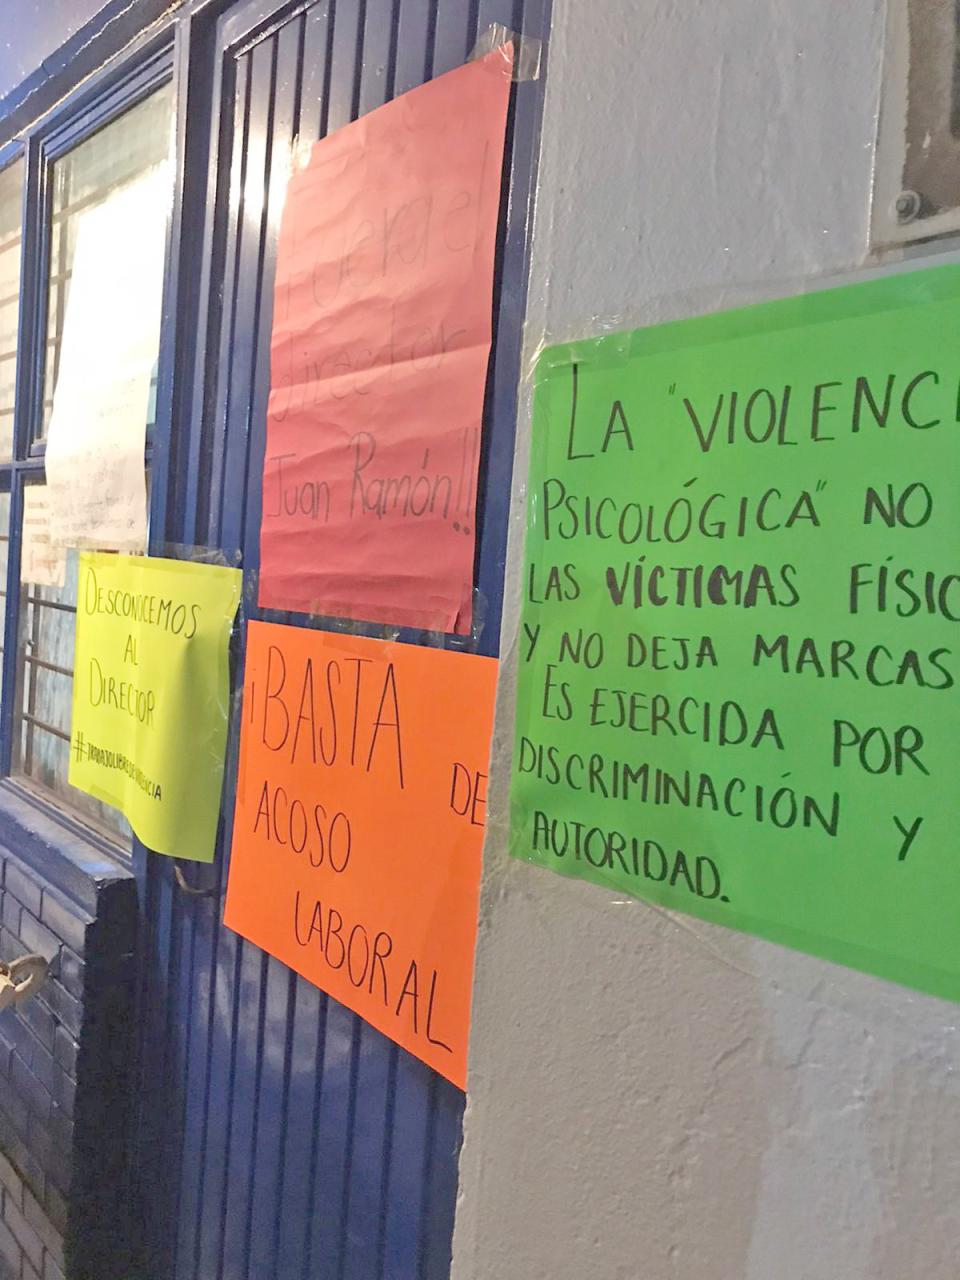 Fuera el
director
Juan Ramón!!
DESCONOCEMOS
AL
DIRECTOR
#TRABAJOLIBREDEVIOLENCIA
¡BASTA DE
ACOSO
LABORAL
LA "VIOLENCI
PSICOLÓGICA" NO
LAS VÍCTIMAS FÍSIC
Y NO DEJA MARCAS
ES EJERCIDA POR
DISCRIMINACIÓN Y
AUTORIDAD.